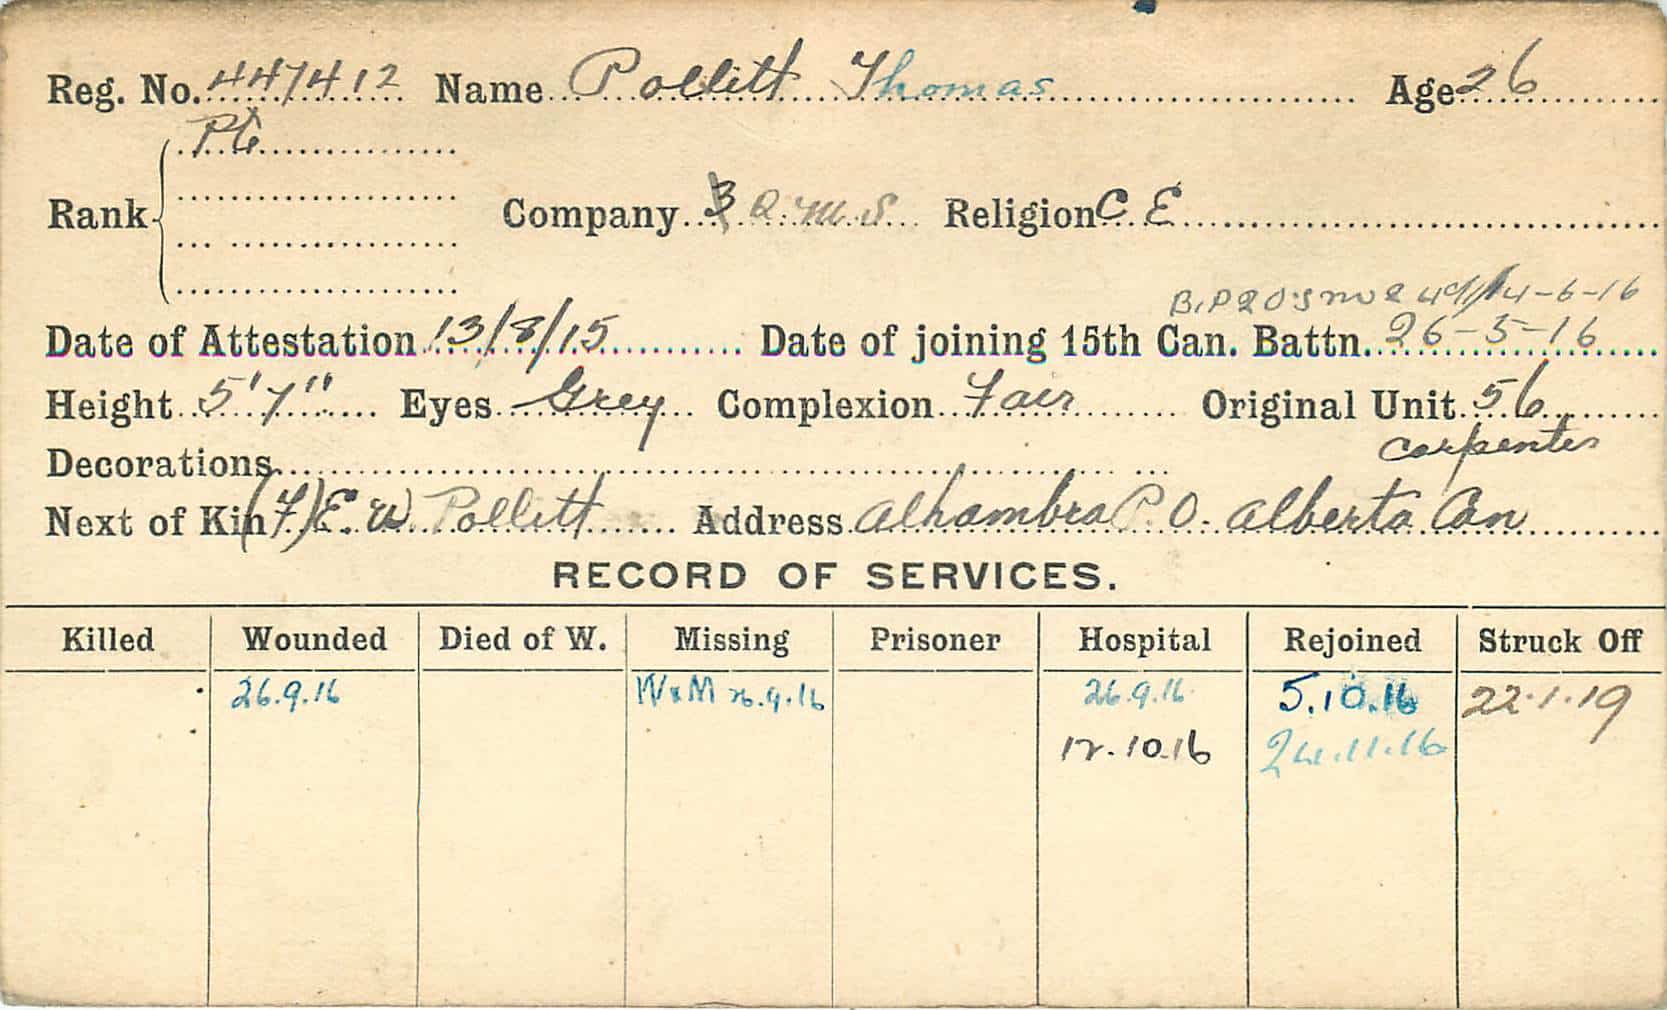 Reg. No. 447412 Name Pollitt Thomas Age 26
Pte
Rank Company B Q.M.S. Religion C.E.
4-6-16
Date of Attestation 13/8/15 Date of joining 15th Can. Battn. 26-5-16
Height 5'7" Eyes Grey Complexion Fair Original Unit 56
carpenter
Decorations
Next of Kin (F) E. W. Pollitt Address Alhambra P.O. Alberta Can
RECORD OF SERVICES.
Killed Wounded Died of W. Missing Prisoner Hospital Rejoined Struck Off
26.9.16 W & M 26.9.16 26.9.16 5.10.16 22.1.19
12.10.16 24.11.16